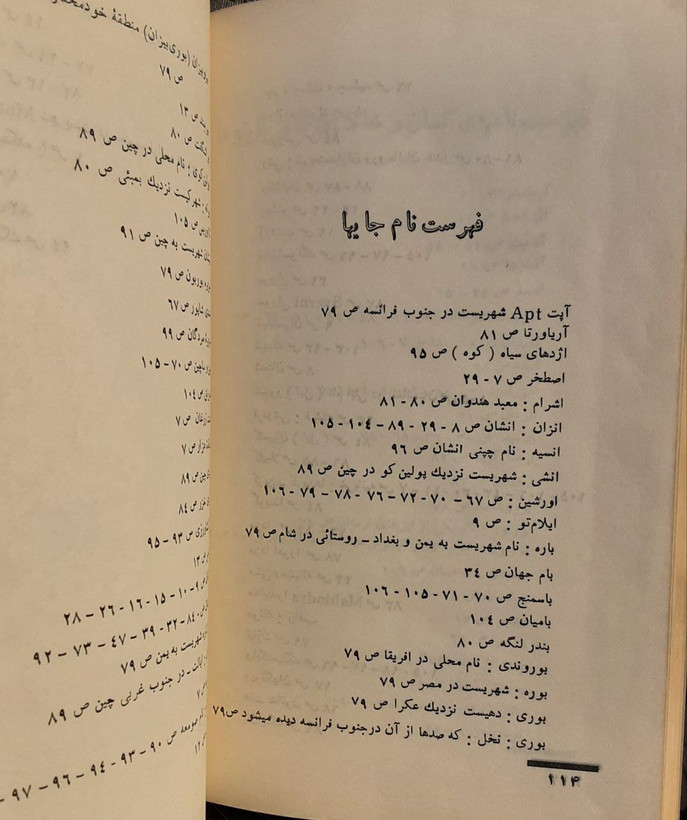 فهرست نام جایها
آپت Apt شهریست در جنوب فرانسه ص ۷۹
آریاورتا ص ۸۱
اژدهای سیاه ( کوه ) ص ۹۵
اصطخر ص ۷ - ۲۹
اشرام : معبد هندوان ص ۸۰ - ۸۱
انزان : انشان ص ۸ - ۲۹ - ۸۹ - ۱۰۴ - ۱۰۵
انسیه : نام چینی انشان ص ۹۶
انشی : شهریست نزدیك پولین کو در چین ص ۸۹
اورشین : ص ۶۷ – ۷۰ - ۷۲ – ۷۶ - ۷۸ – ۷۹ - ۱۰۶
ایلام‌تو : ص ۹
باره : نام شهریست به یمن و بغداد ـ روستائی در شام ص ۷۹
بام جهان ص ۳۴
باسمنج ص ۷۰ - ۷۱ - ۱۰۵ - ۱۰۶
بامیان ص ۱۰۴
بندر لنگه ص ۸۰
بوروندی : نام محلی در افریقا ص ۷۹
بوره : شهریست در مصر ص ۷۹
بوری : دهیست نزدیك عکرا ص ۷۹
بوری : نخل : که صدها از آن درجنوب فرانسه دیده میشود ص۷۹
۱۱۴
(بوری‌بیزان) منطقهٔ
ص ۷۹
ص ۱۳
ص ۸۰
: نام محلی در چین ص ۸۹
شهرکیست نزدیك بمبئی ص ۸۰
ص ۱۰۵
شهریست به چین ص ۹۱
بوربون ص ۷۹
شاپور ص ۶۷
ص ۹۹
ص ۷۰ - ۱۰۵
ص ۱۰۴
ص ۷
ص ۷
ص ۸۹
ص ۸۴
ص ۹۳ - ۹۵
۹ - ۱۰ - ۱۵ - ۱۶ - ۲۶ – ۲۸
۸۴ - ۳۲ - ۳۹ – ۴۷ – ۷۳ – ۹۲
شهریست به یمن ص ۷۹
ایالت ـ در جنوب غربی چین ص ۸۹
ص ۹۰ - ۹۳ - ۹۴ – ۹۶ - ۹۷ -